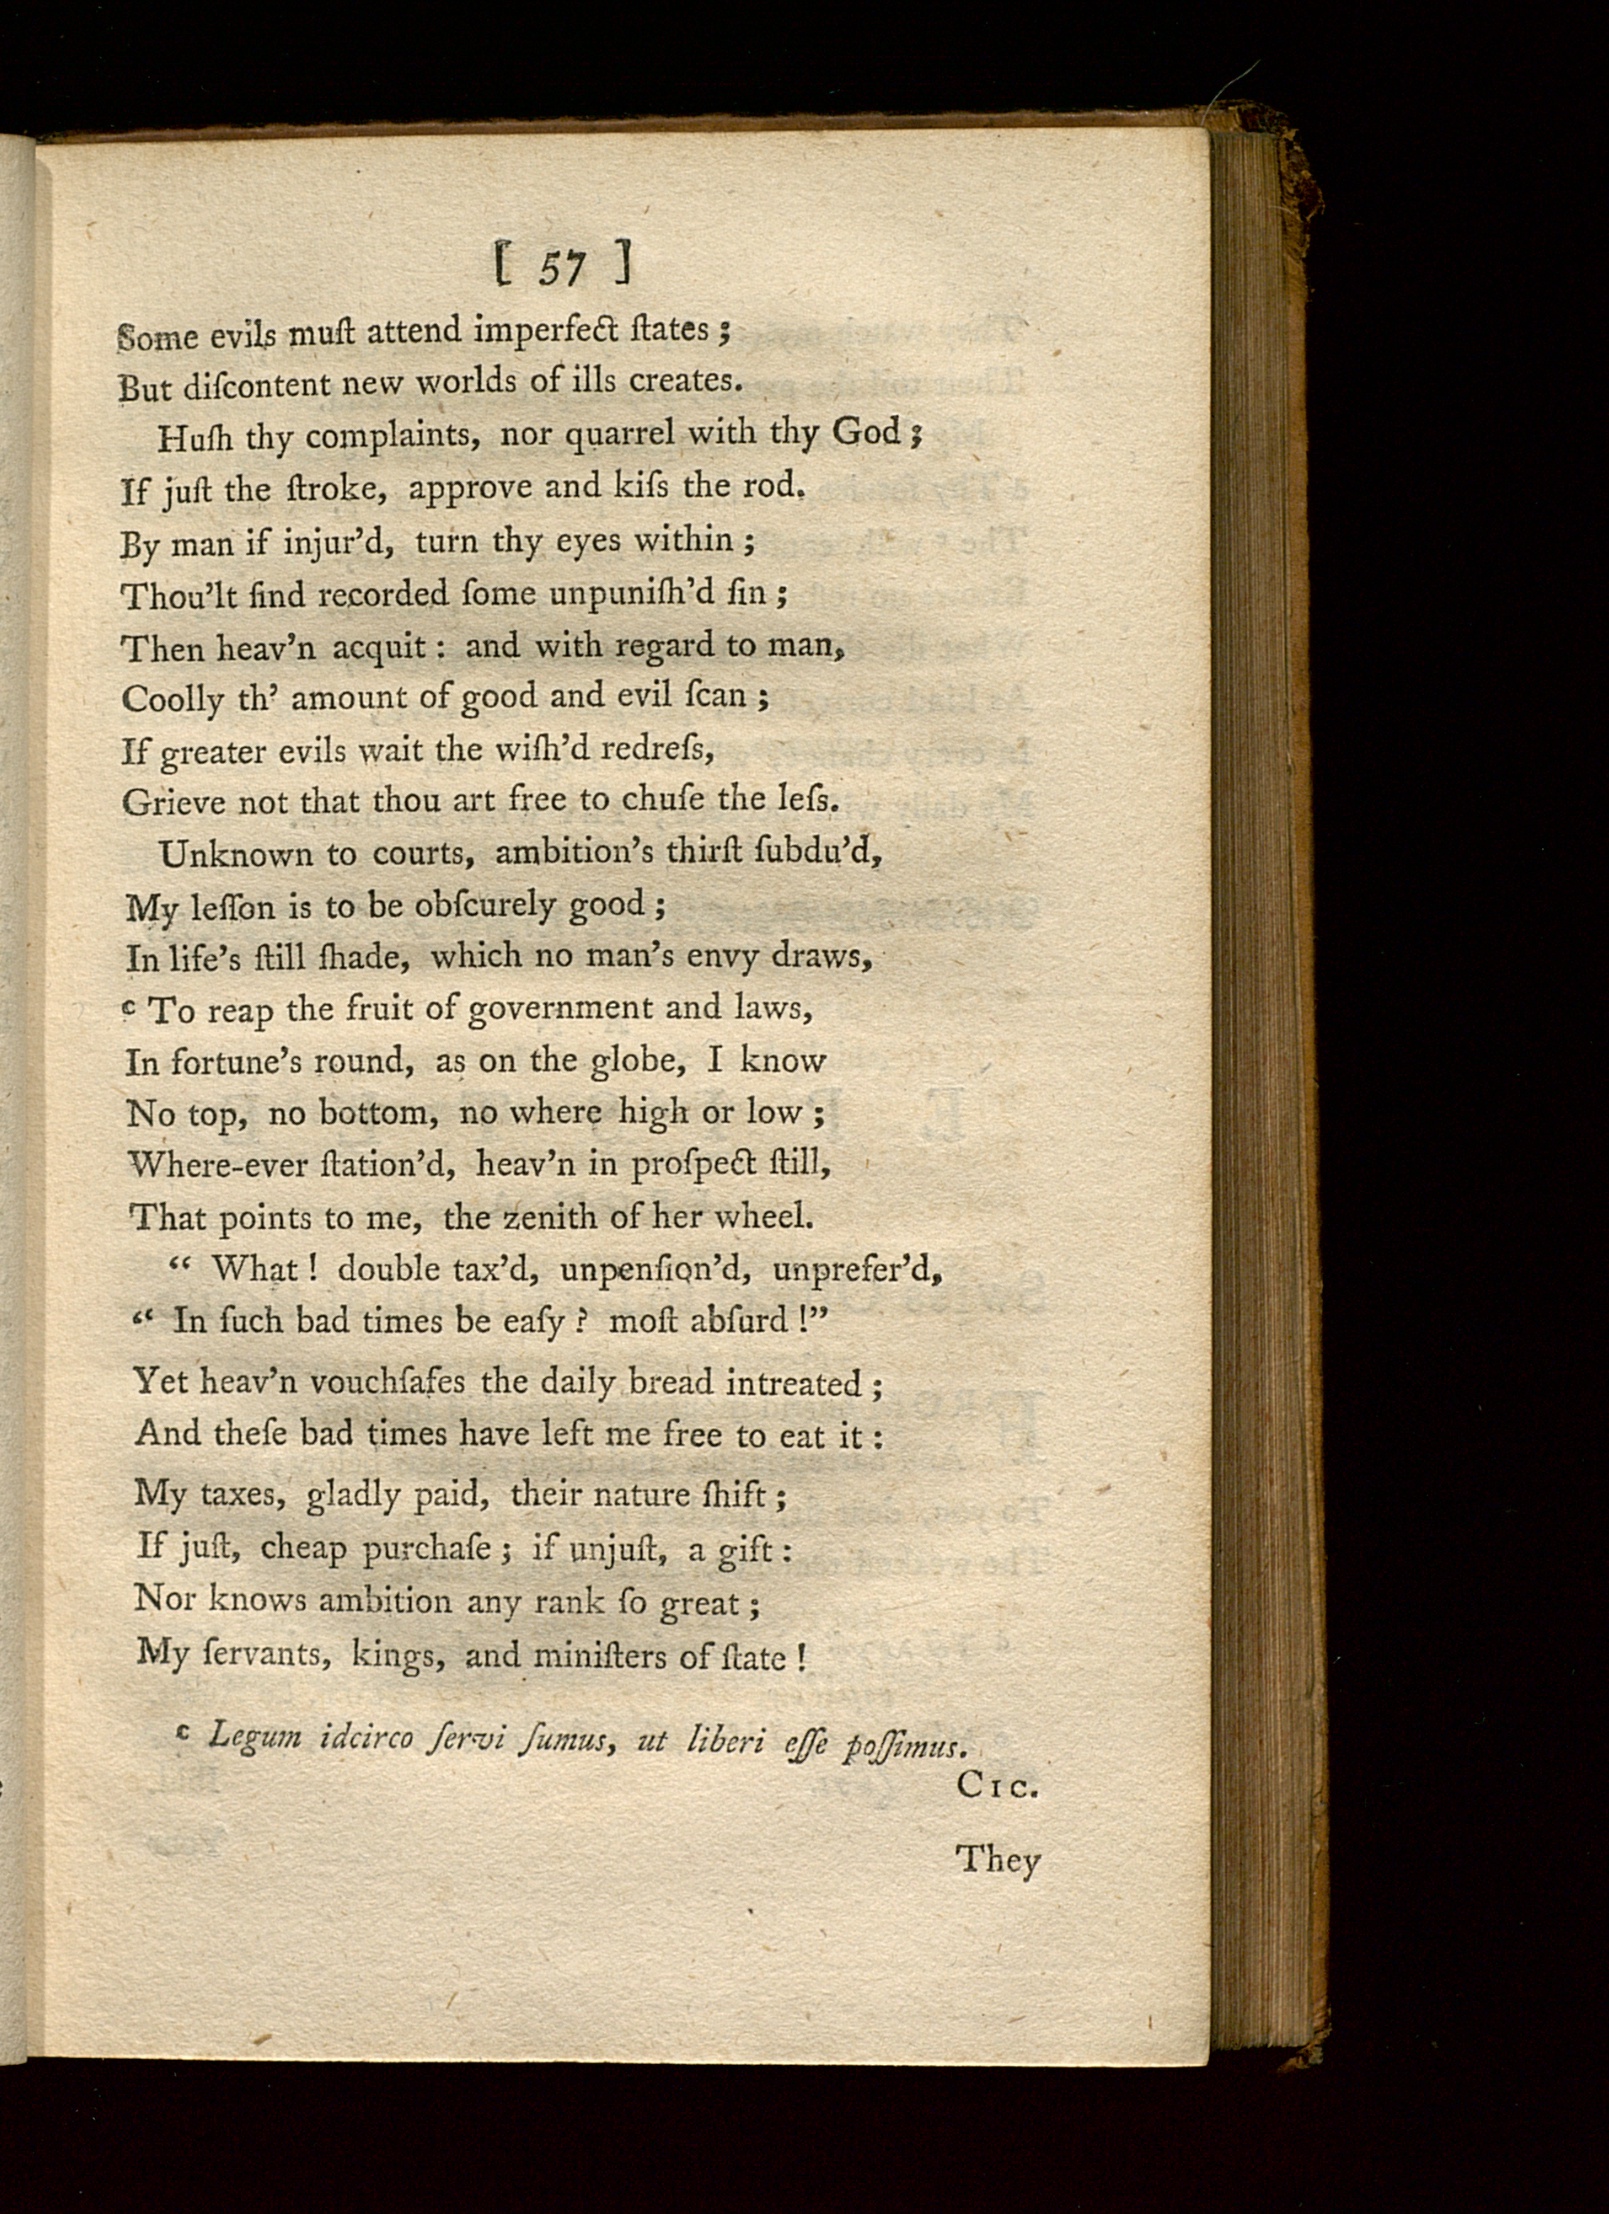 [ 57 ]
Some evils muſt attend imperfect ſtates ;
But diſcontent new worlds of ills creates.
Huſh thy complaints, nor quarrel with thy God ;
If juſt the ſtroke, approve and kiſs the rod.
By man if injur'd, turn thy eyes within ;
Thou'lt find recorded ſome unpuniſh'd ſin ;
Then heav'n acquit : and with regard to man,
Coolly th' amount of good and evil ſcan ;
If greater evils wait the wiſh'd redreſs,
Grieve not that thou art free to chuſe the leſs.
Unknown to courts, ambition's thirſt ſubdu'd,
My leſſon is to be obſcurely good ;
In life's ſtill ſhade, which no man's envy draws,
c To reap the fruit of government and laws,
In fortune's round, as on the globe, I know
No top, no bottom, no where high or low ;
Where-ever ſtation'd, heav'n in proſpect ſtill,
That points to me, the zenith of her wheel.
“ What ! double tax'd, unpenſion'd, unprefer'd,
“ In ſuch bad times be eaſy ? moſt abſurd !”
Yet heav'n vouchſafes the daily bread intreated ;
And theſe bad times have left me free to eat it :
My taxes, gladly paid, their nature ſhift ;
If juſt, cheap purchaſe ; if unjuſt, a gift :
Nor knows ambition any rank ſo great ;
My ſervants, kings, and miniſters of ſtate !
c Legum idcirco ſervi ſumus, ut liberi eſſe poſſimus.
CIC.
They